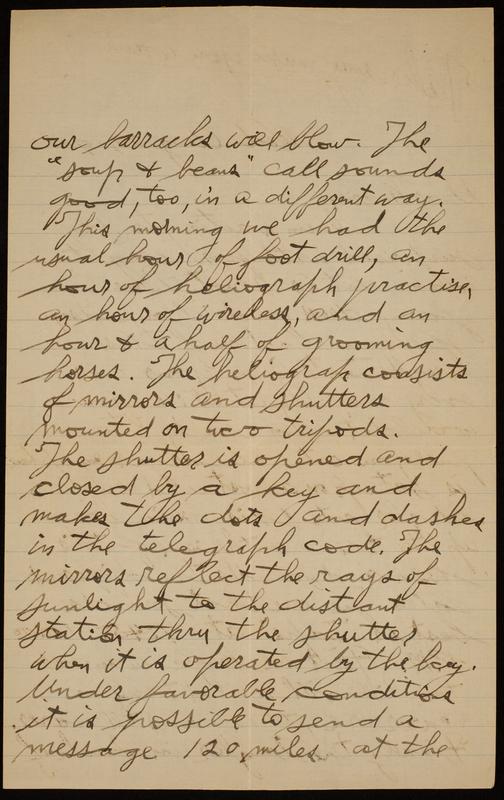 our barracks will blow. The
"soup & beans" call sounds
good, too, in a different way.
This morning we had the
usual hour of foot drill, an
hour of heliograph practise,
an hour of wireless, and an
hour & a half of grooming
horses. The heliograph consists
of mirrors and shutters
mounted on two tripods.
The shutter is opened and
closed by a key and
makes the dots and dashes
in the telegraph code. The
mirrors reflect the rays of
sunlight to the distant
station thru the shutter
when it is operated by the key.
Under favorable conditions
it is possible to send a
message 120 miles at the